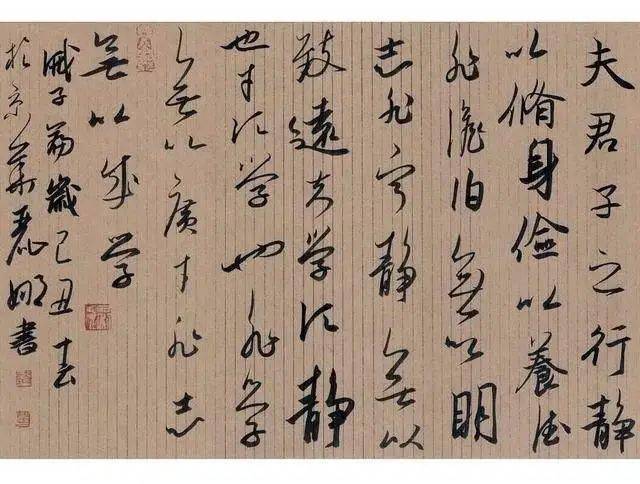 夫君子之行静
以脩身儉以養德
非澹泊無以明
志非寧静無以
致遠夫学須静
也才須学也非学
無以廣才非志
無以成学
誡子篇歲己丑春
於京華麗娜書